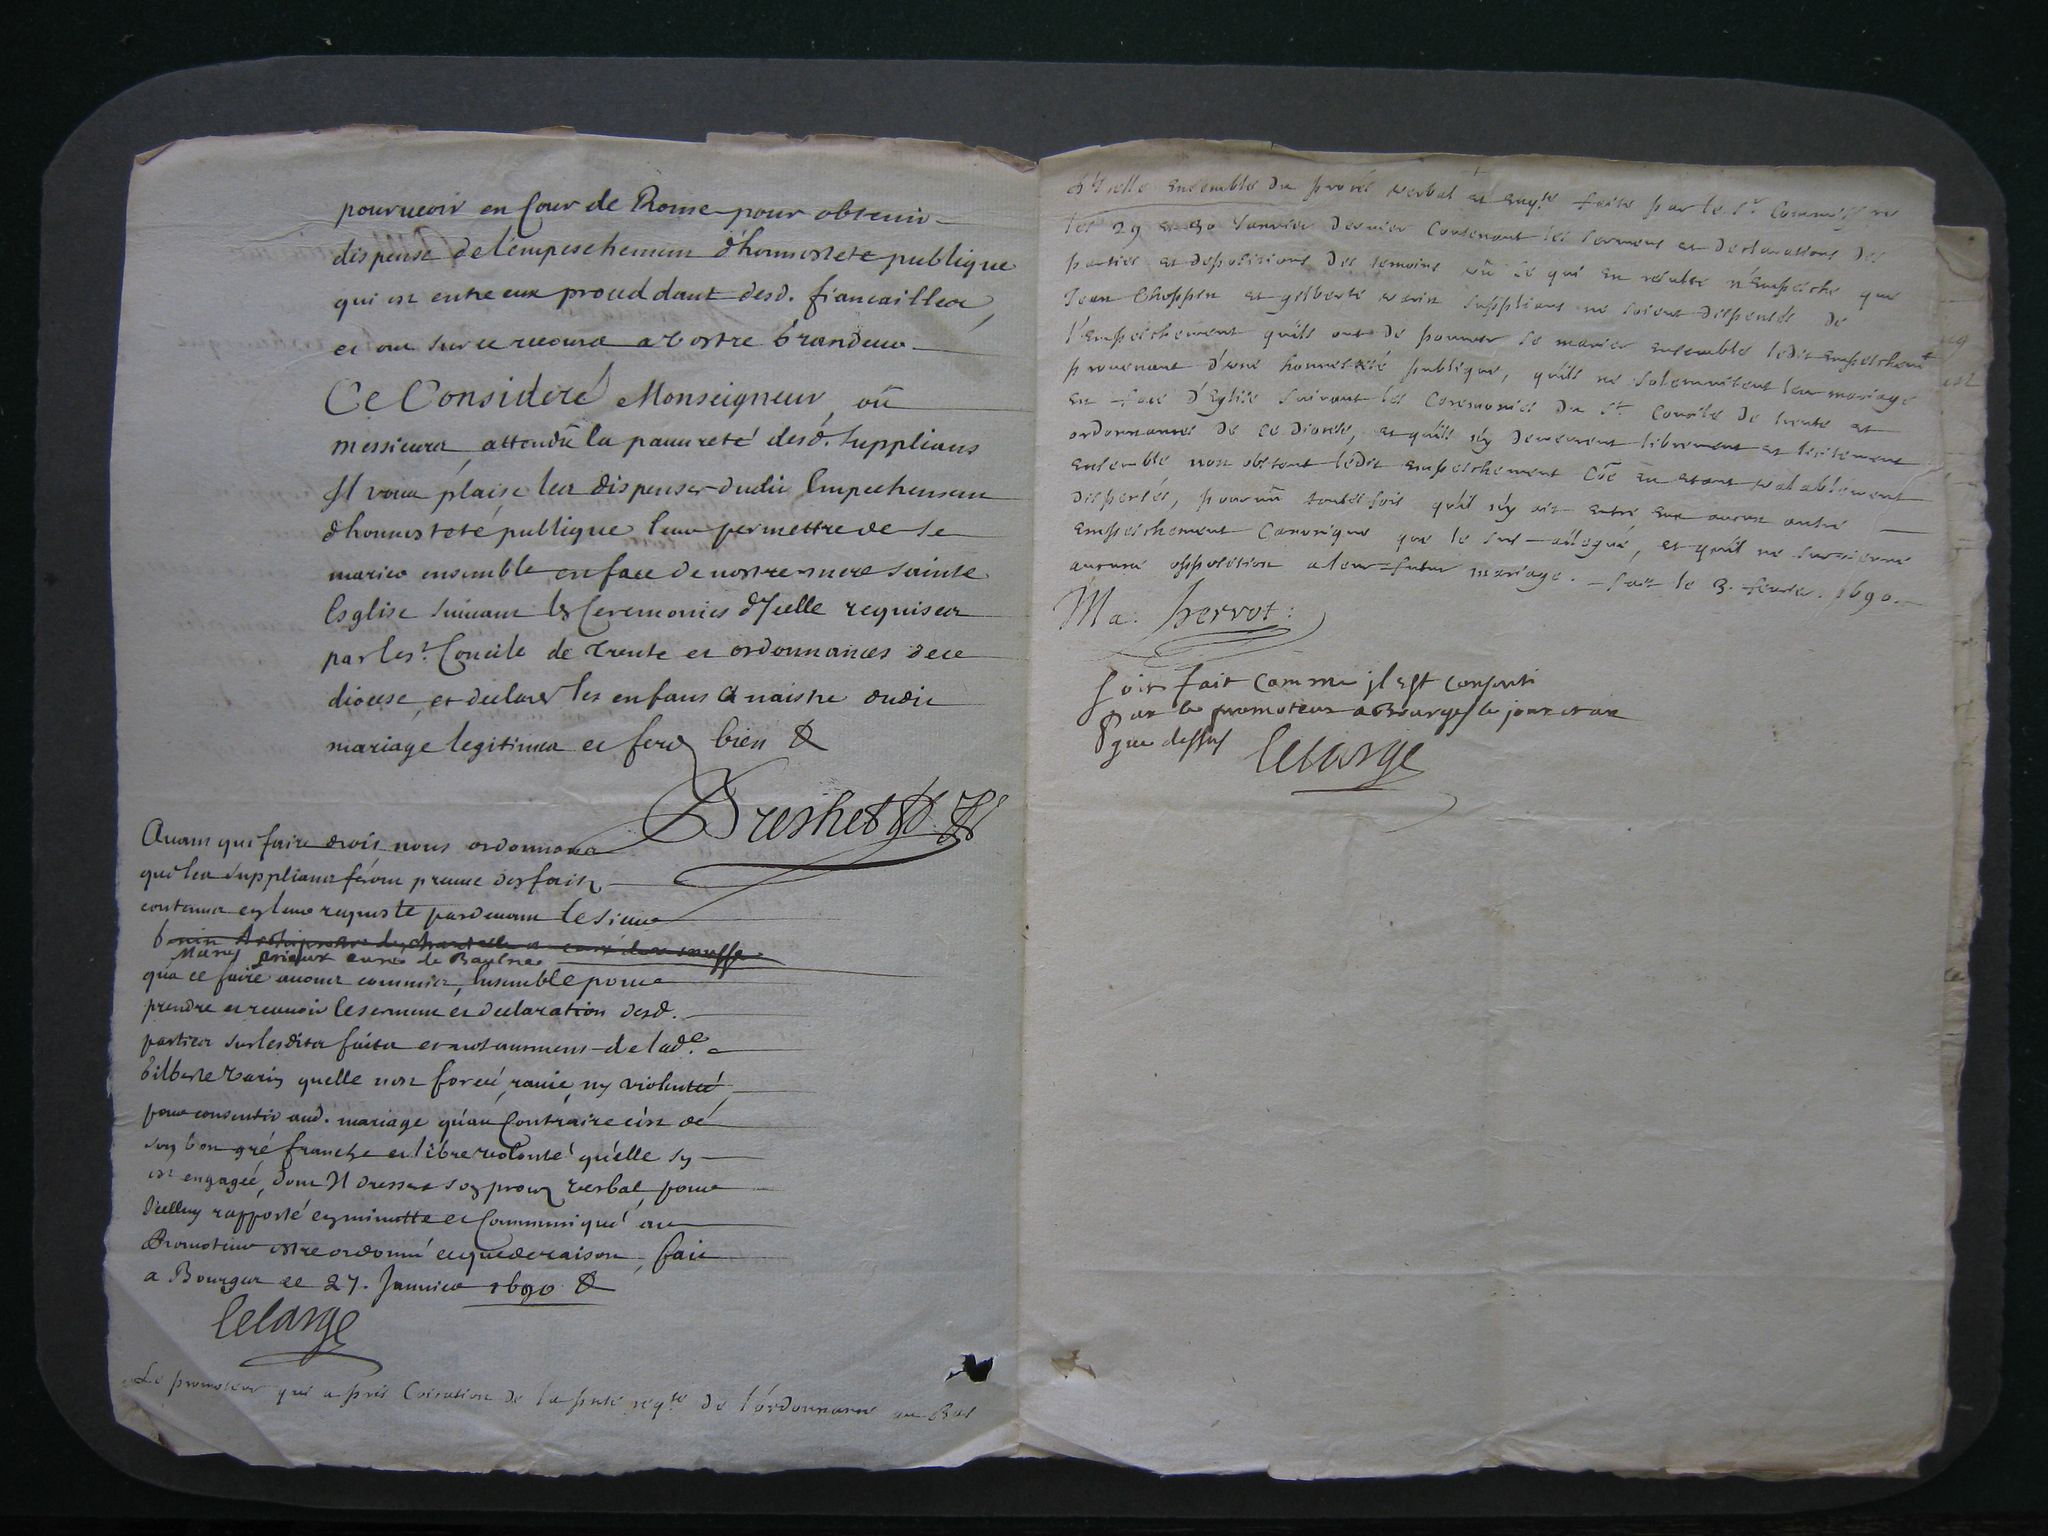 pourveoir en Cour de Rome pour obtenir
dispense de l'empeschement d'honnestete publique
qui est entre eux proceddant desd. fiancailles,
et ont sur ce recours a Vostre Grandeur
Ce Consideré Monseigneur, ou
messieurs, attendu la pauureté desd. Supplians
Il vous plaise les dispenser dudit Empechement
d'honnesteté publique leur permettre de se
marier ensemble en face de nostre mere Sainte
Esglise suiuant les Ceremonies d'Icelle requises
par le st. Concile de Trente et ordonnances de ce
diocese, et declarer les enfans a naistre dudit
mariage legitimes et ferez bien &
Auant que faire droit nous ordonnons
que les supplians feront preuue des faits
contenus en leur requeste pardeuant le sieur
Marin prieur curé de
qu'a ce faire auons commis, Ensemble pour
prendre et receuoir le serment et declaration desd.
parties sur lesdits faits et notamment de lad.e
Gilberte Warin quelle n'est forcée, rauie, ny violentée
pour consentir aud. mariage qu'au Contraire c'est de
son bon gré franche et libre volonté qu'elle s'y
est engagée, dont Il dressera son procez verbal, pour
Icelluy rapporté en minutte et Communiqué au
Promoteur estre ordonné ce que de raison, fait
a Bourges ce 27. Januier 1690 &
Lelarge
Le promoteur qui a pris Coïcation de la pnte reqte de l'ordonnance au Bas
d'Icelle Ensemble du procés verbal et enqte faite par le sr. Commissre
les 29 et 30 Januier dernier Contenant les serment et declarations des
parties et depositions des temoins vû ce qui en résulte n'Empeche que
Jean Choppin et gilberte warin supplians ne soient dispensés de
l'Empeschement qu'ils ont de pouuoir se marier ensemble ledit Empeschent
prouenant d'une honnesteté publique, qu'ils ne solemnisent leur mariage
en face d'Eglise suiuant les Ceremonies du st. Concile de trente et
ordonnances de ce diocése, et qu'ils n'y demeurent librement et licitement
ensemble non obstant ledit empeschement Côe en etant valablement
dispensés, pourvû toutesfois qu'il n'y ait entre eux aucun autre
empeschement Canonique que le sus-allegué, et qu'il ne suruienne
aucune opposition a leur futur mariage. fait le 3. feurier. 1690.
Ma: hervot:
Soit fait comme il est consenti
par le promoteur a Bourges le jour et an
que dessus Lelarge